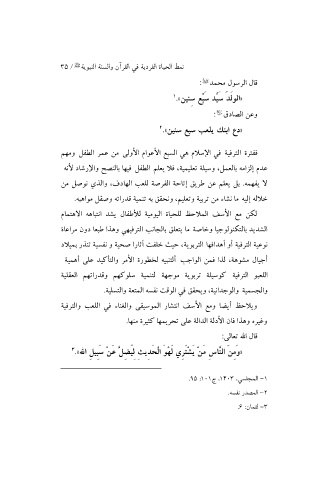 نمط الحياة الفردية في القرآن والسنة النبوية ﷺ / ٣٥
قال الرسول محمد ﷺ:
«الولَدَ سَيِّد سَبْع سِنين».١
وعن الصادق :
«دع ابنك يلعب سبع سنين».٢
ففترة الترفية في الإسلام هي السبع الأعوام الأولى من عمر الطفل ومهم
عدم إلزامه بالعمل، وسيلة تعليمية، فلا يعلم الطفل فيها بالنصح والإرشاد لأنه
لا يفهمه. بل يعلم عن طريق إتاحة الفرصة للعب الهادف، والذي نوصل من
خلاله إليه ما نشاء من تربية وتعليم، ونحقق به تنمية قدراته وصقل مواهبه.
لكن مع الأسف الملاحظ للحياة اليومية للأطفال يشد انتباهه الاهتمام
الشديد بالتكنولوجيا وخاصة ما يتعلق بالجانب الترفيهي وهذا طبعا دون مراعاة
نوعية الترفية أو أهدافها التربوية، حيث خلفت آثارا صحية و نفسية تنذر بميلاد
أجيال مشوهة، لذا فمن الواجب ألتنبيه لخطورة الأمر والتأكيد على أهمية
اللعبو الترفية كوسيلة تربوية موجهة لتنمية سلوكهم وقدراتهم العقلية
والجسمية والوجدانية، ويحقق في الوقت نفسه المتعة والتسلية.
ويلاحظ أيضا ومع الأسف انتشار الموسيقى والغناء في اللعب والترفية
وغيره وهذا فان الأدلة الدالة على تحريمها كثيرة منها.
قال الله تعالى:
«وَمِنَ النَّاسِ مَنْ يَشْتَرِي لَهْوَ الْحَدِيثِ لِيُضِلَّ عَنْ سَبِيلِ الله».٣
١- المجلسي، ١٤٠٣، ج١٠١: ٩٥.
٢- المصدر نفسه.
٣- لقمان: ٦.